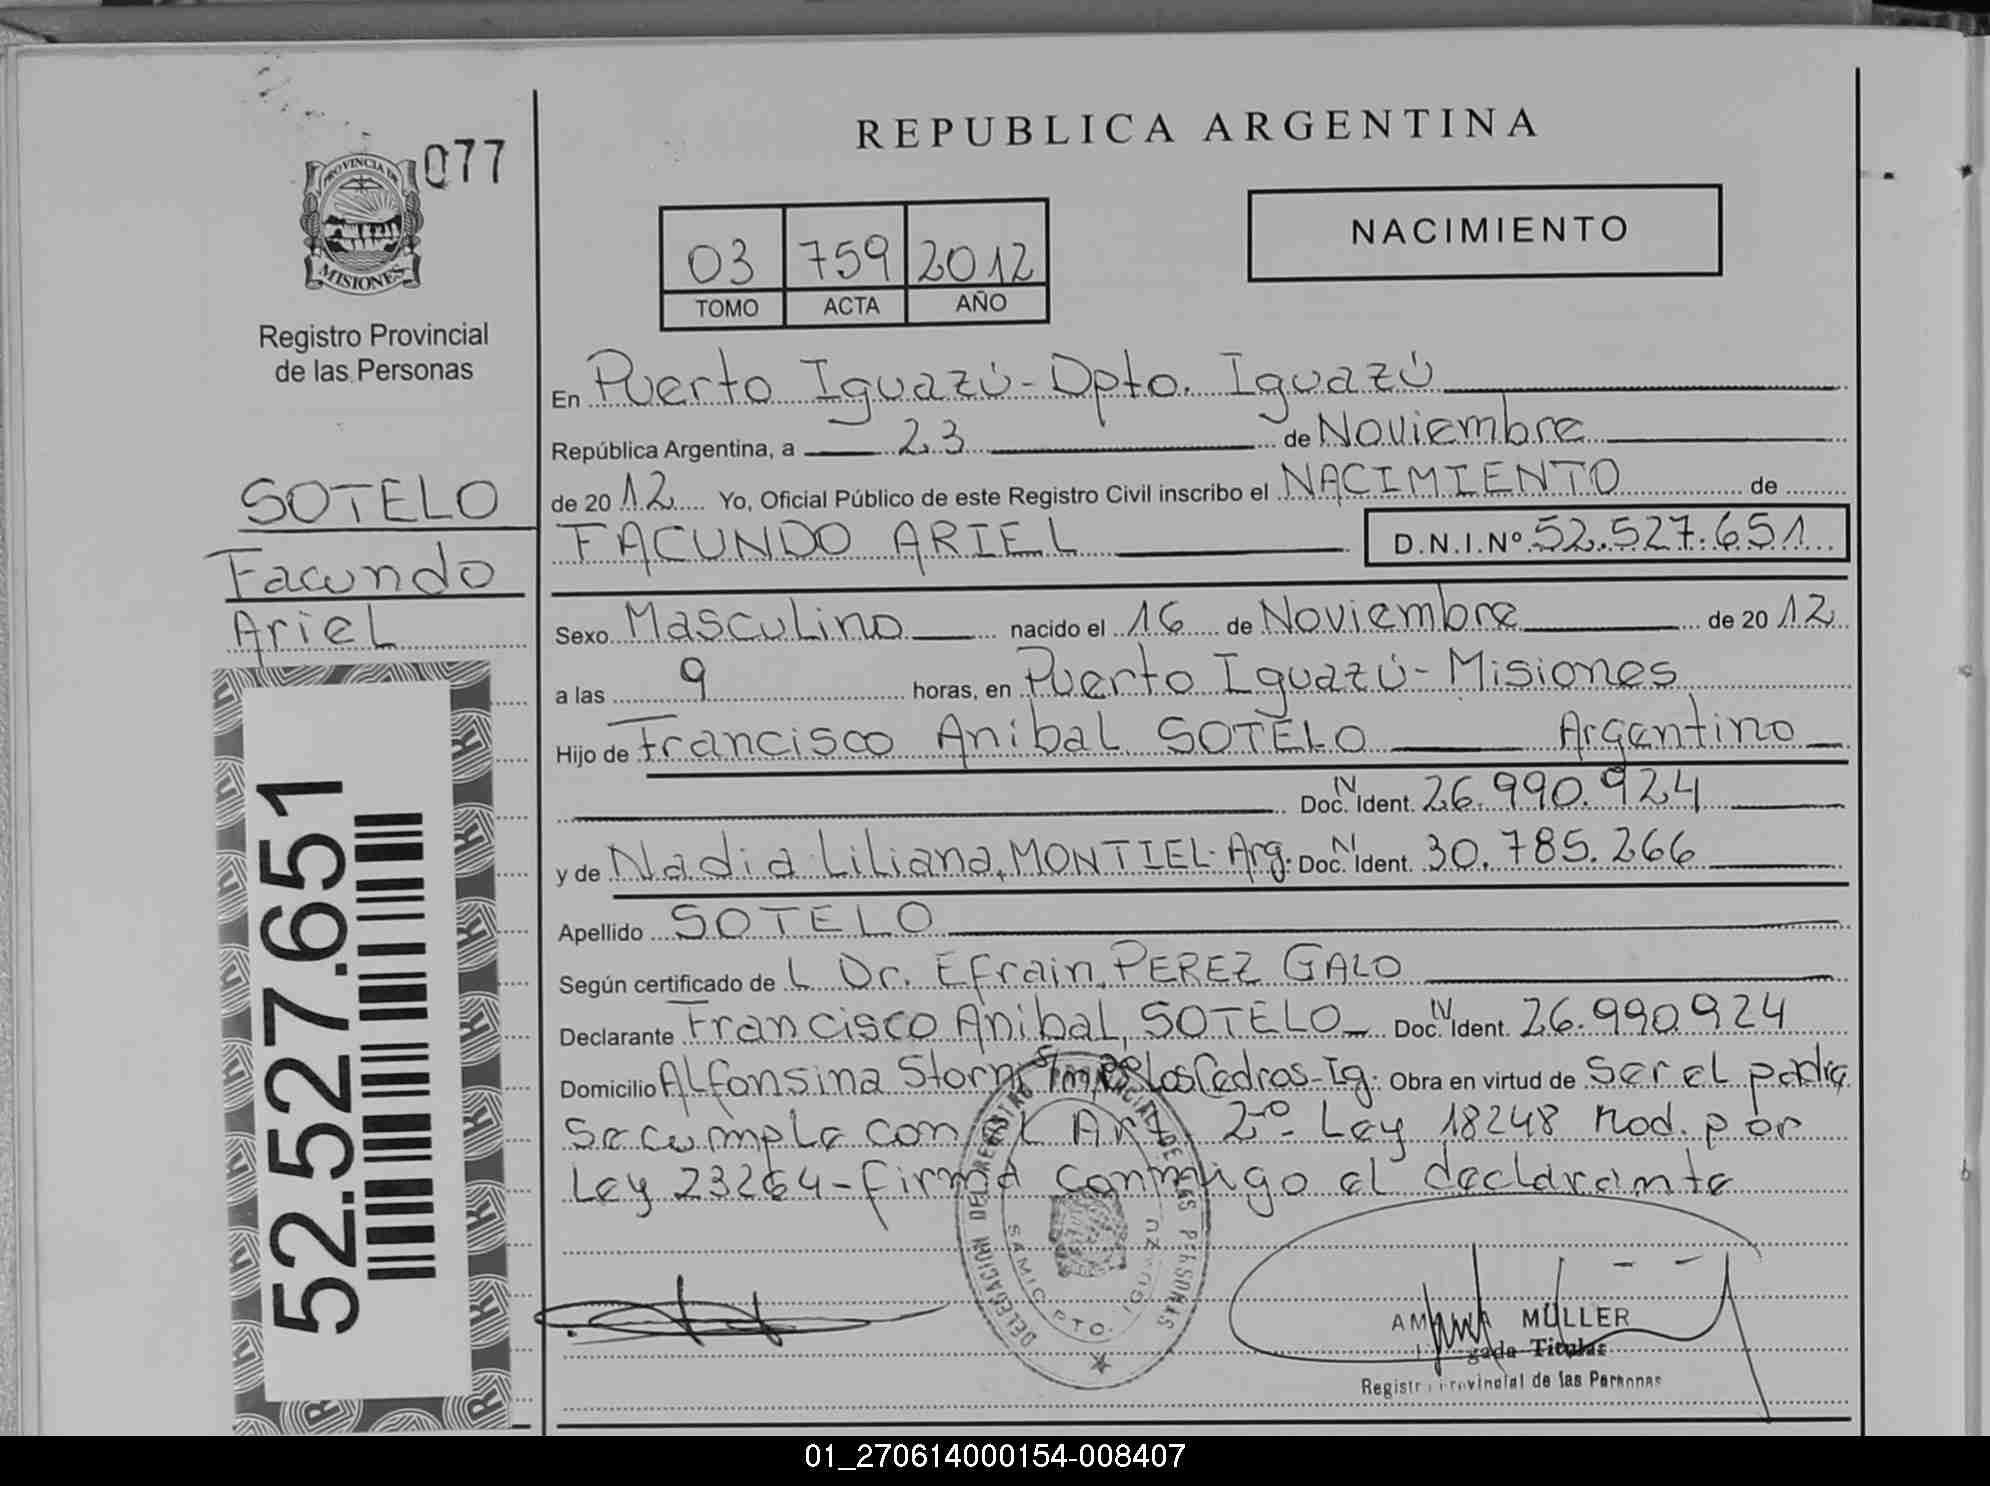 REPUBLICA ARGENTINA
077
PROVINCIA DE
MISIONES
Registro Provincial
de las Personas
03 759 2012
TOMO ACTA AÑO
NACIMIENTO
En Puerto Iguazú - Dpto. Iguazú
República Argentina, a 23 de Noviembre
de 2012 Yo, Oficial Público de este Registro Civil inscribo el NACIMIENTO de
FACUNDO ARIEL D.N.I.Nº 52.527.651
SOTELO
Facundo
Ariel
Sexo Masculino nacido el 16 de Noviembre de 2012
a las 9 horas, en Puerto Iguazú - Misiones
Hijo de Francisco Anibal SOTELO Argentino
Doc. N Ident. 26.990.924
y de Nadia Liliana MONTIEL - Arg. Doc. N Ident. 30.785.266
Apellido SOTELO
Según certificado de L Dr. Efrain PEREZ GALO
Declarante Francisco Anibal SOTELO Doc. N Ident. 26.990924
Domicilio Alfonsina Storni Los Cedros - Ig. Obra en virtud de Ser el padre
Se cumple con el Art. 2º Ley 18248 Mod. por
Ley 23264 - firma conmigo el declarante
52.527.651
DELEGACION DEL REGISTRO PROVINCIAL DE LAS PERSONAS
SAMIC PTO. IGUAZU
MÜLLER
Titular
Registro Provincial de las Personas
01_270614000154-008407